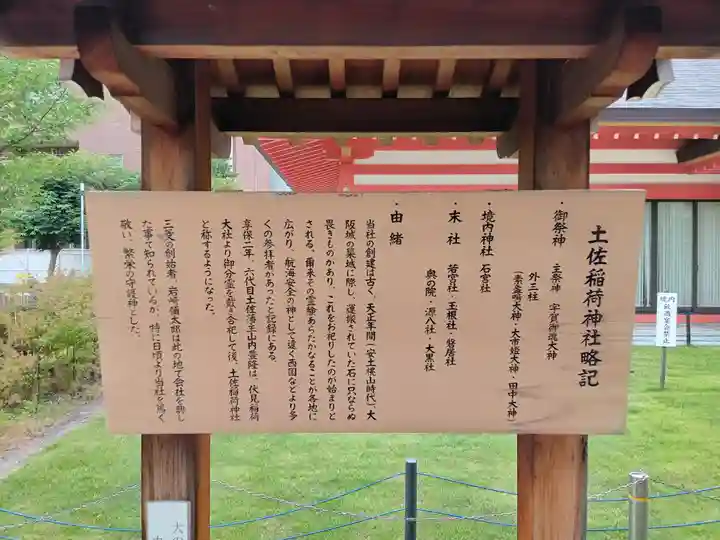 土佐稲荷神社略記
・御祭神 主祭神 宇賀御魂大神
外三柱
(素盞嗚大神・大市姫大神・田中大神)
・境内神社 石宮社
・末社 若宮社・玉根社・磐居社
奥の院・源八社・大黒社
・由緒
当社の創建は古く、天正年間(安土桃山時代)、大
阪城の築城に際し、運搬されていた石に只ならぬ
畏きものがあり、これをお祀りしたのが始まりと
される。爾来その霊験あらたかなることが各地に
広がり、航海安全の神として遠く西国などより多
くの参拝者があったと記録にある。
享保二年、六代目土佐藩主山内豊隆は、伏見稲荷
大社より御分霊を戴き合祀して後、土佐稲荷神社
と称するようになった。
三菱の創始者、岩崎彌太郎は此の地で会社を興し
た事で知られているが、特に日頃より当社を篤く
敬い、繁栄の守護神とした。
境内
飲酒宴会禁止